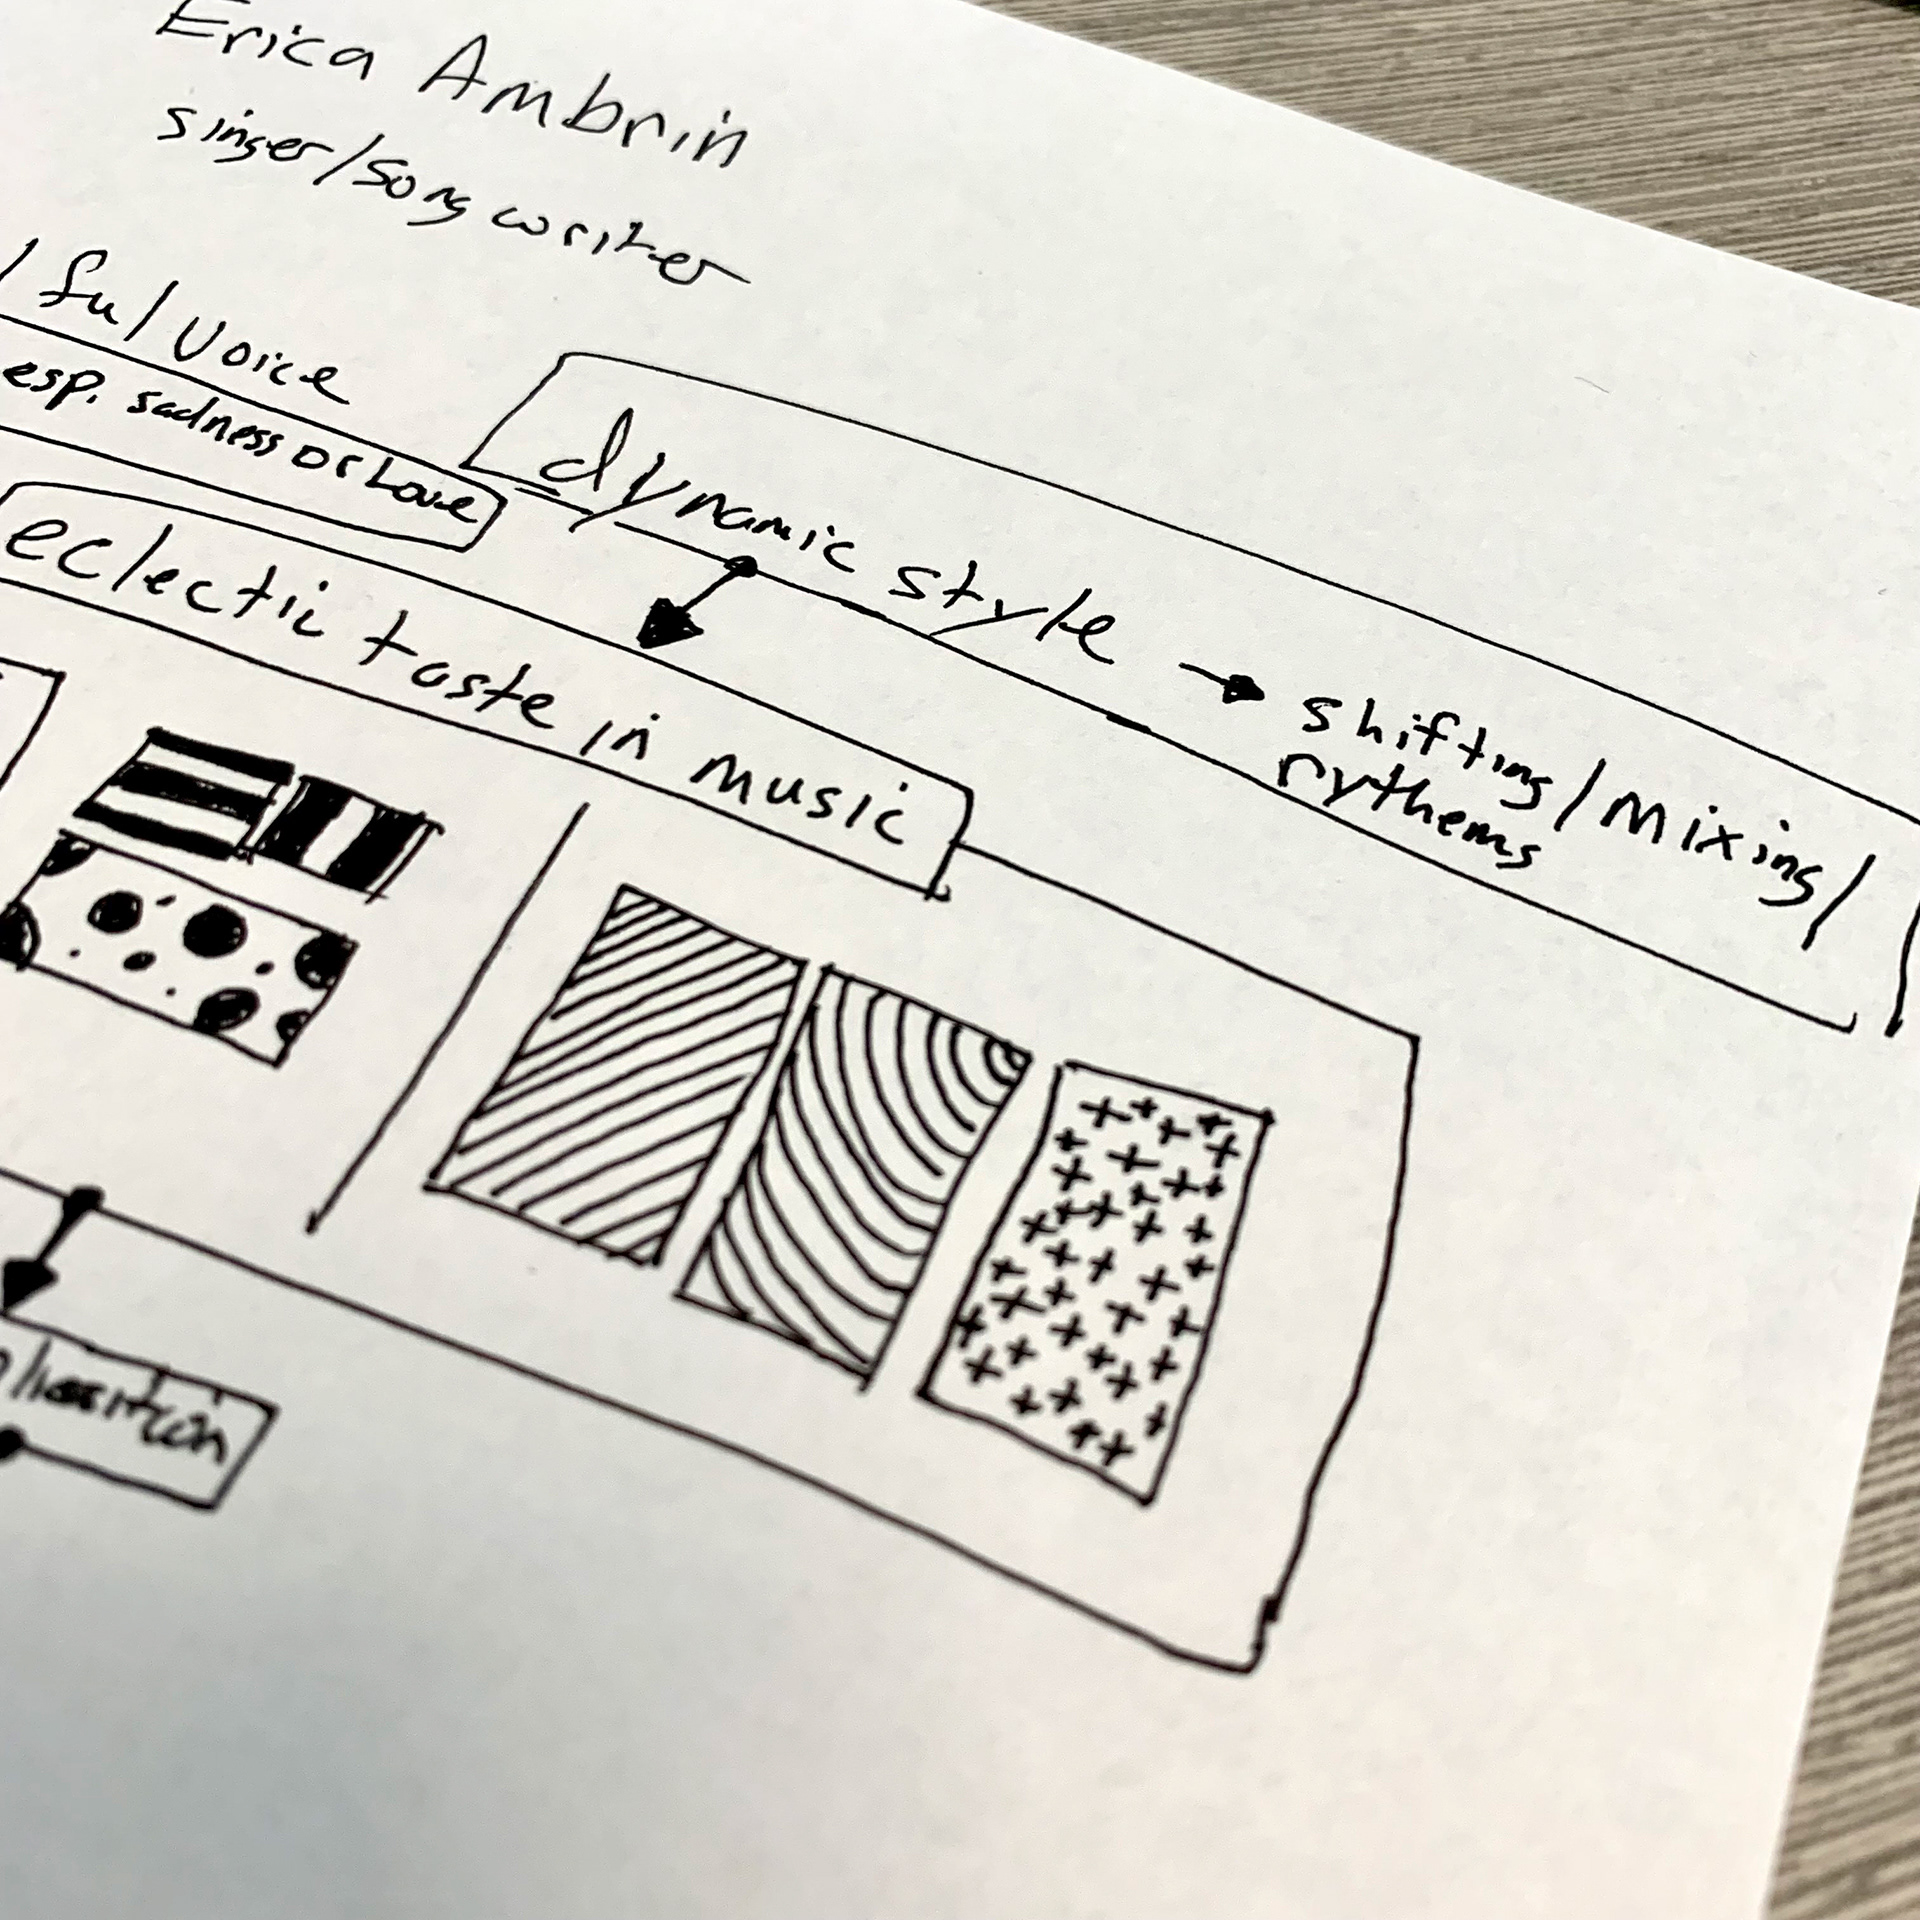 Erica Ambrin
singer/songwriter
ful voice
esp. sadness or Love
dynamic style → shifting/mixing/
rythems
eclectic taste in music